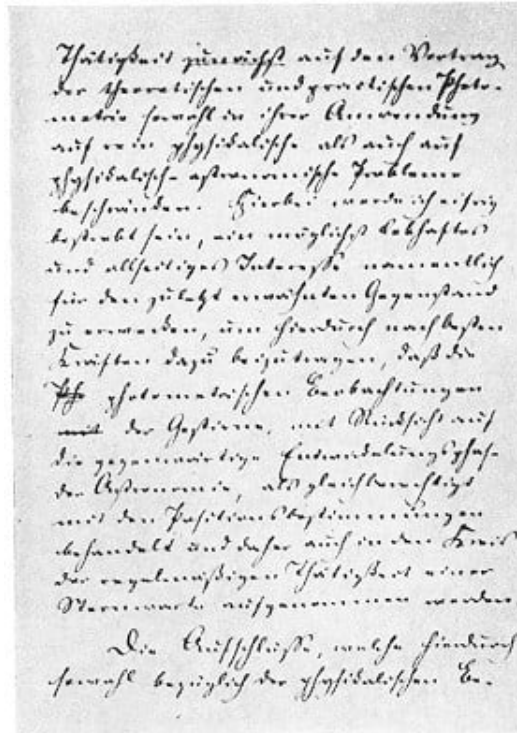 Thätigkeit zunächst auf den Vortrag
der theoretischen und practischen Photo-
metrie sowohl in ihrer Anwendung
auf rein physikalische als auch auf
physikalisch-astronomische Probleme
beschränken. Hierbei werde ich eifrig
bestrebt sein, ein möglichst lebhaftes
und allseitiges Interesse namentlich
für den zuletzt erwähnten Gegenstand
zu erwecken, um hierdurch nach besten
Kräften dazu beizutragen, daß die
photometrischen Beobachtungen
der Gestirne, mit Rücksicht auf
die gegenwärtige Entwickelungsphase
der Astronomie, als gleichberechtigt
mit den Positionsbestimmungen
behandelt und daher auch in den Kreis
der regelmäßigen Thätigkeit einer
Sternwarte aufgenommen werden
Die Aufschlüsse, welche hierdurch
sowohl bezüglich der physikalischen Be-